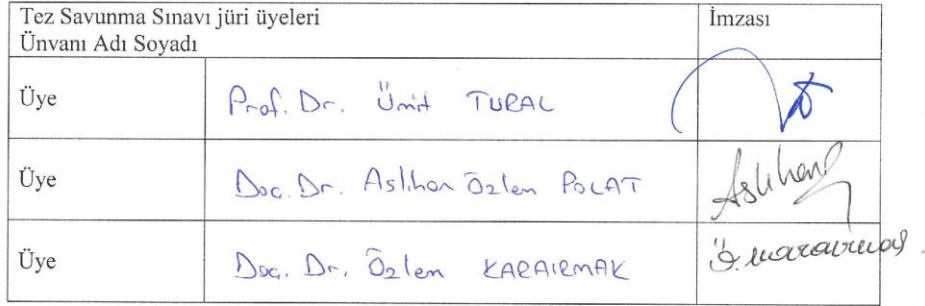 Tez Savunma Sınavı jüri üyeleri
Ünvanı Adı Soyadı
İmzası
Üye Prof. Dr. Ümit TURAL
Üye Doç. Dr. Aslıhan Özlem POLAT Aslıhan
Üye Doç. Dr. Özlem KARAIRMAK Ö. Karaırmak